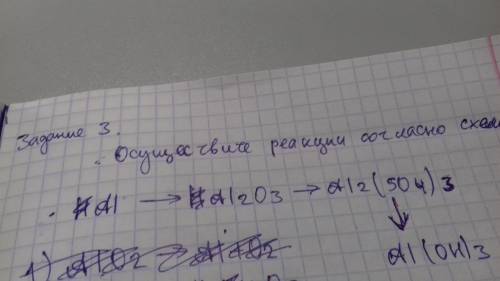 Задание 3.
Осуществите реакции согласно
Al → Al2O3 → Al2(SO4)3
↓
1)
Al(OH)3